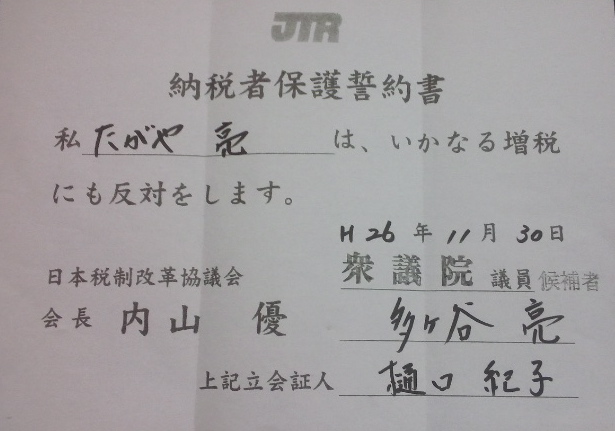 JTR
納税者保護誓約書
私 たがや 亮 は、いかなる増税
にも反対をします。
H 26 年 11 月 30 日
日本税制改革協議会 衆議院 議員 候補者
会長 内山 優 多ケ谷 亮
上記立会証人 樋口 紀子